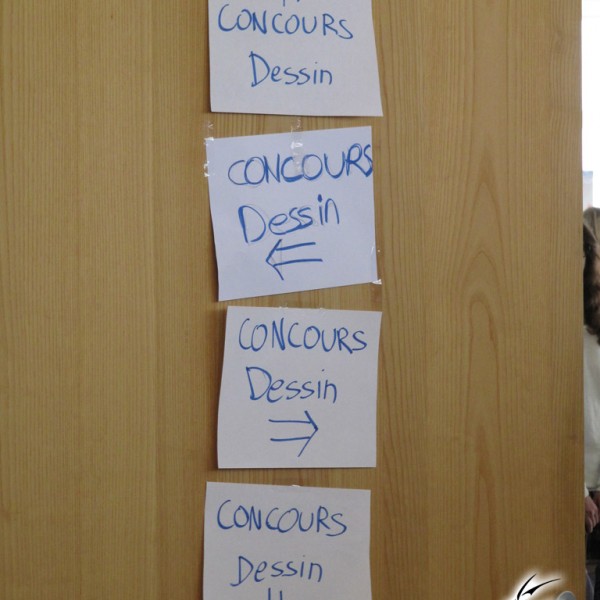 CONCOURS
Dessin
CONCOURS
Dessin
⇐
CONCOURS
Dessin
⇒
CONCOURS
Dessin